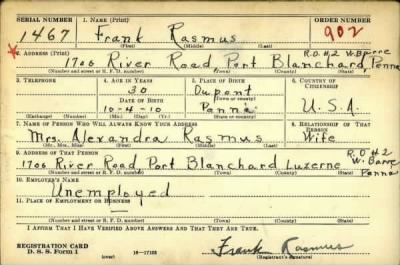 SERIAL NUMBER 1. NAME (Print) ORDER NUMBER
1467 Frank Rasmus 902
(First) (Middle) (Last)
2. ADDRESS (Print) R.D #2 W-Barre
1706 River Road, Port Blanchard Penna
(Number and street or R. F. D. number) (Town) (County) (State)
3. TELEPHONE 4. AGE IN YEARS 5. PLACE OF BIRTH 6. COUNTRY OF CITIZENSHIP
30 Dupont
DATE OF BIRTH (Town or county)
10-4-10 Penna U.S.A.
(Exchange) (Number) (Mo.) (Day) (Yr.) (State or country)
7. NAME OF PERSON WHO WILL ALWAYS KNOW YOUR ADDRESS 8. RELATIONSHIP OF THAT PERSON
Mrs. Alexandra Rasmus Wife
(Mr., Mrs., Miss) (First) (Middle) (Last)
9. ADDRESS OF THAT PERSON R.D #2
1706 River Road, Port Blanchard Luzerne W-Barre Penna
(Number and street or R. F. D. number) (Town) (County) (State)
10. EMPLOYER'S NAME
Unemployed
11. PLACE OF EMPLOYMENT OR BUSINESS
—
(Number and street or R. F. D. number) (Town) (County) (State)
I AFFIRM THAT I HAVE VERIFIED ABOVE ANSWERS AND THAT THEY ARE TRUE.
REGISTRATION CARD
D. S. S. Form 1 (over) 16-17105 Frank Rasmus
(Registrant's signature)